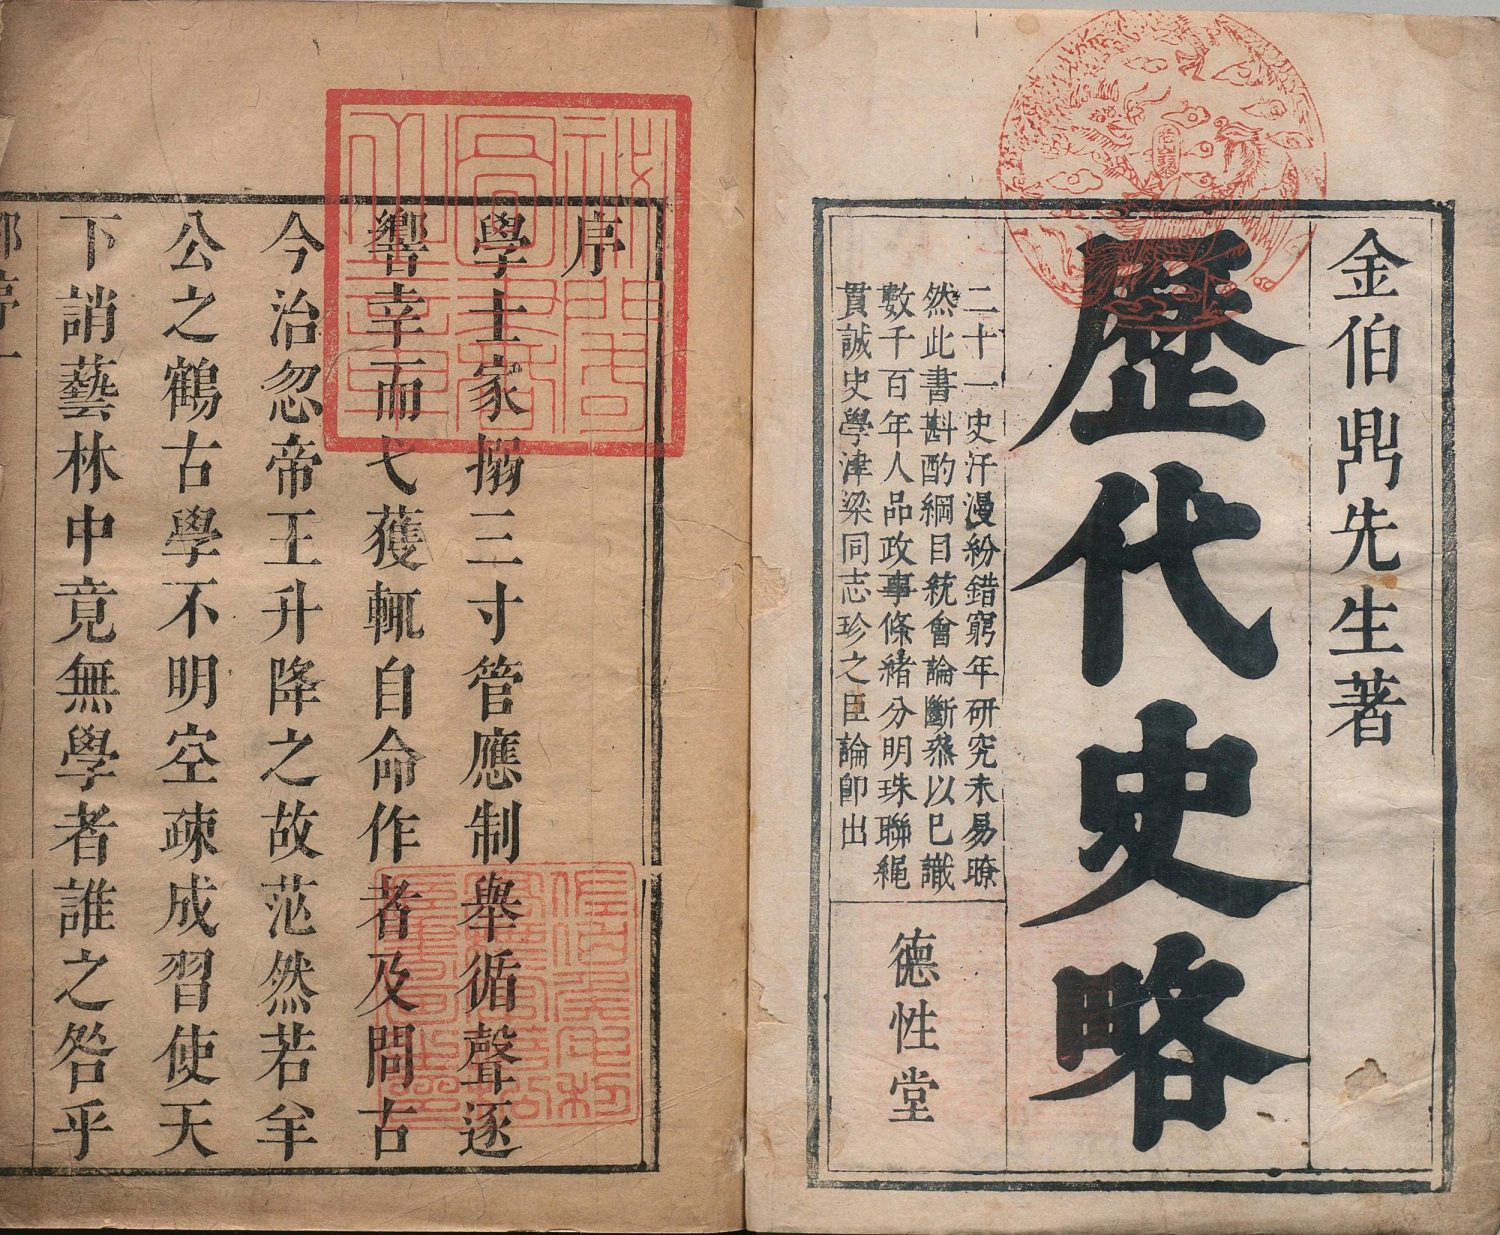 金伯鼎先生著
歷代史略
二十一史汗漫紛錯窮年研究未易瞭
然此書斟酌綱目統會論斷叅以巳識
數千百年人品政事條緒分明珠聯繩
貫誠史學津梁同志珍之臣論卽出
德性堂
序
學士家搦三寸管應制舉循聲逐
響幸而弋獲輒自命作者及問古
今治忽帝王升降之故茫然若羊
公之鶴古學不明空疎成習使天
下誚藝林中竟無學者誰之咎乎
序一